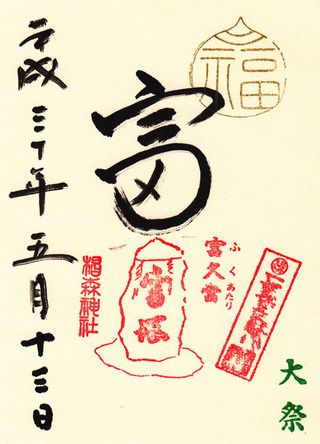 福
大祭
ふくあたり
富久當
富
富塚
椙森神社
平成三十年五月十三日